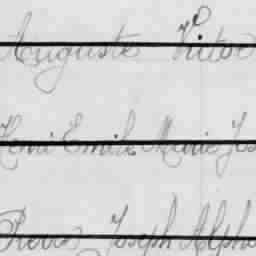 Auguste Victor
Henri Emile Marie Jos
Pierre Joseph Alpho